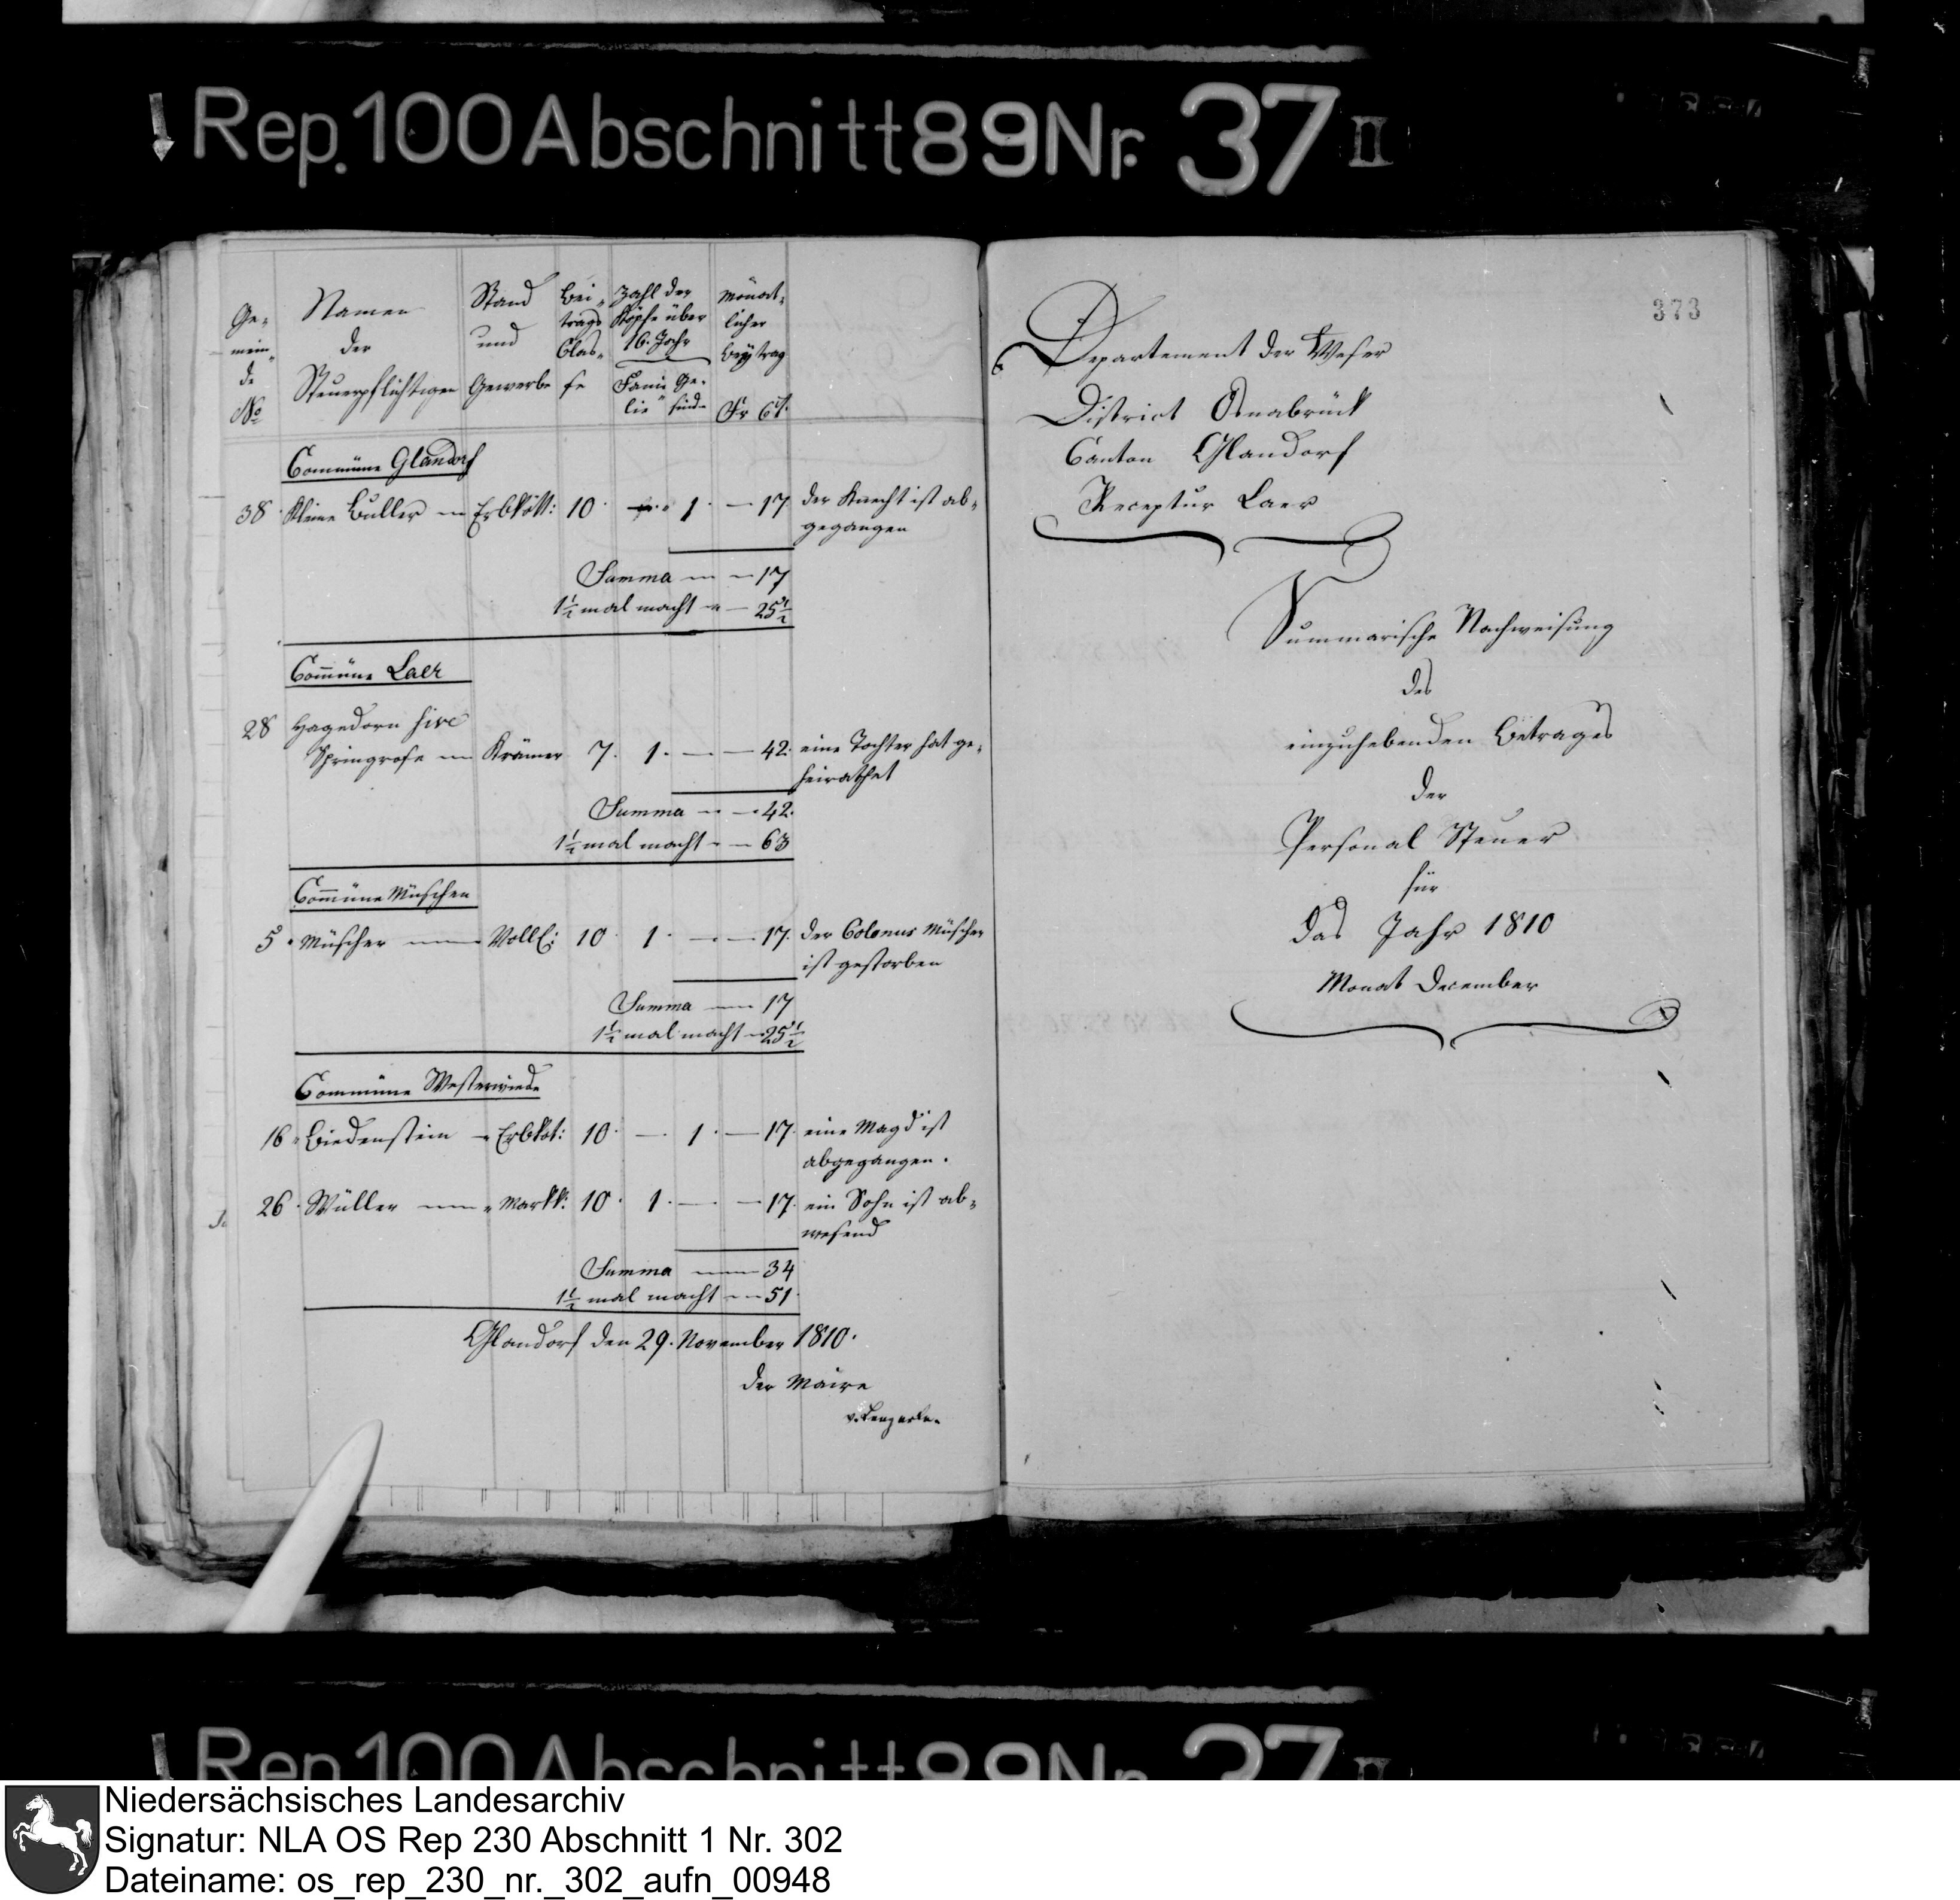 Rep. 100 Abschnitt 89 Nr. 37 II
Ge-
mein-
de
No
Namen
der
Steuerpflichtigen
Stand
und
Gewerbe
Bei-
trags
Clas-
se
Zahl der
Köpfe über
16. Jahr
Fami-
lie
Ge-
sinde
Monat-
licher
Beytrag
Fr Ct.
Commüne Glandorf
38 Kleine Buller — Erbkött: 10 · — 1 · — 17. der Knecht ist ab-
gegangen
Summa — — 17
1½ mal macht — 25½
Com̄üne Laer
28 Hagedorn sive
Springrose — Krämer 7. 1. — — 42. eine Tochter hat ge-
heirathet
Summa — — 42.
1½ mal macht — — 63
Com̄üne Müschen
5 Müscher — Vollc: 10 · 1 · — — 17. der Colonus Müscher
ist gestorben
Summa — 17
1½ mal macht — 25½
Commüne Westerwiede
16 Biedenstein — Erbköt: 10 · — 1 · — 17. eine Magd ist
abgegangen.
26 Wüller — Markk: 10 · 1 · — — 17. ein Sohn ist ab-
wesend
Summa — 34
1½ mal macht — 51.
Glandorf den 29. November 1810.
der Maire
373
Departement der Weser
District Osnabrück
Canton Glandorf
Receptur Laer
Summarische Nachweisung
des
einzuhebenden Betrages
der
Personal Steuer
für
das Jahr 1810
Monat December
Rep. 100 Abschnitt 89 Nr. 37 II
Niedersächsisches Landesarchiv
Signatur: NLA OS Rep 230 Abschnitt 1 Nr. 302
Dateiname: os_rep_230_nr._302_aufn_00948